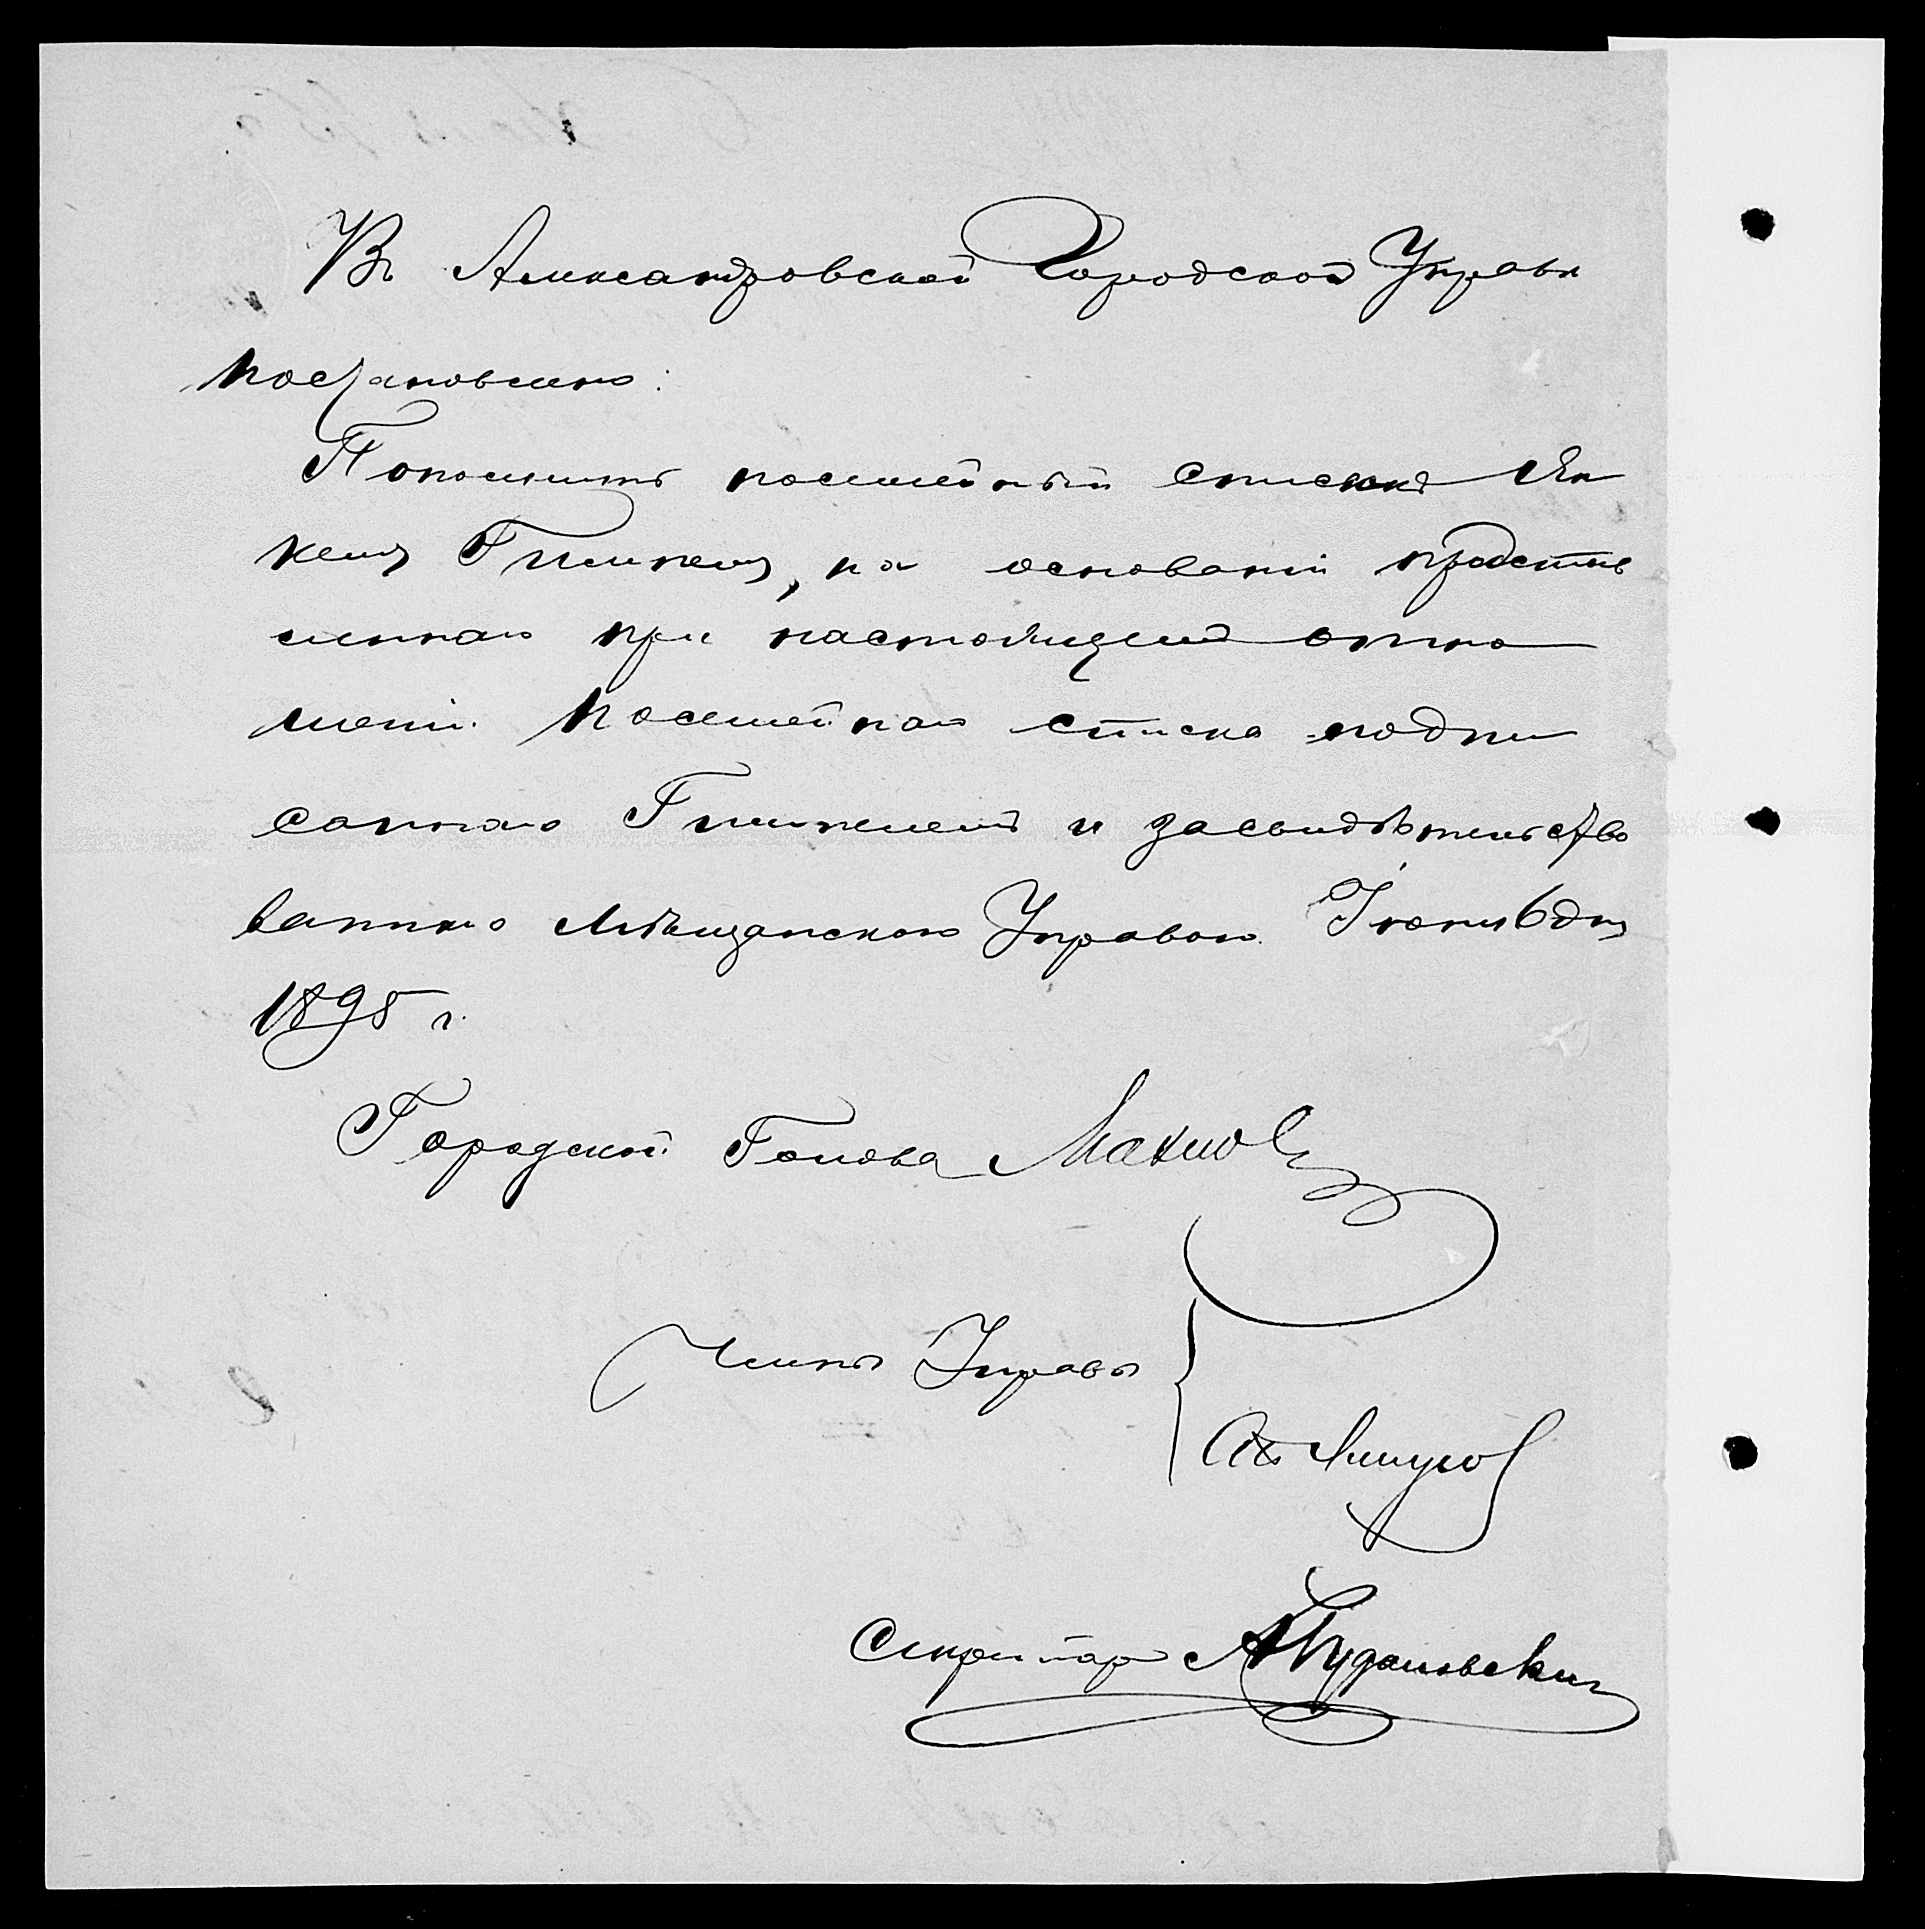 Въ Александровской Городской Управѣ
постановлено:
Пополнить посемейный списокъ Ян
келя Гимпеля, на основаніи представ
леннаго при настоящемъ отно
шеніи посемейнаго списка подпи
саннаго Гимпелемъ и засвидѣтельство
ваннаго Мѣщанскою Управою. Іюня 6 дня
1895 г.
Городской Голова Махно
Члены Управы
Секретарь